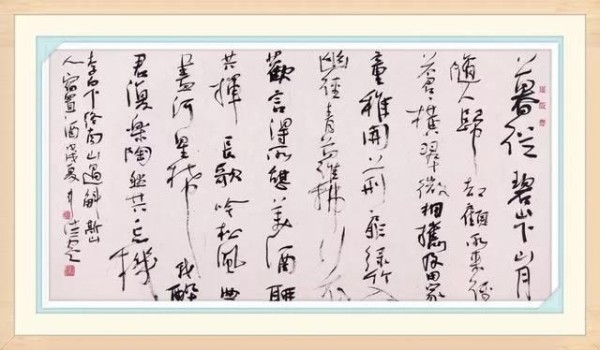 暮從碧山下山月
隨人歸却顧所來徑
蒼蒼橫翠微相攜及田家
童稚開荆扉綠竹入
幽徑青蘿拂行衣
歡言得所憩美酒聊
共揮長歌吟松風曲
盡河星稀我醉
君復樂陶然共忘機
李白下終南山過斛斯山
人宿置酒戊戌夏